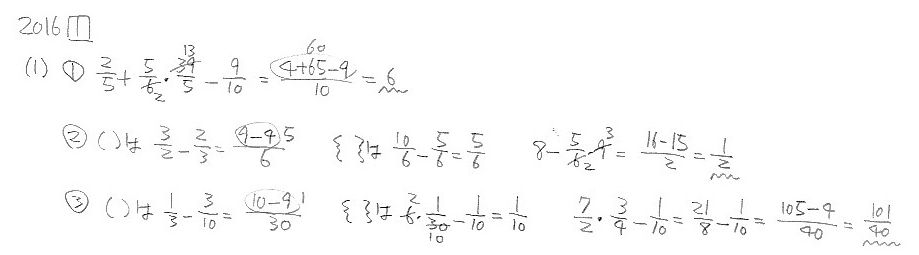 2016 1
(1) ① 2/5 + 5/6 2 · 39 13/5 - 9/10 = 4+65-9 60/10 = 6
② ( )は 3/2 - 2/3 = 9-4 5/6 { }は 10/6 - 5/6 = 5/6 8 - 5/6 2 · 9 3 = 16-15/2 = 1/2
③ ( )は 1/3 - 3/10 = 10-9 1/30 { }は 6 2 · 1/30 10 - 1/10 = 1/10 7/2 · 3/4 - 1/10 = 21/8 - 1/10 = 105-4/40 = 101/40